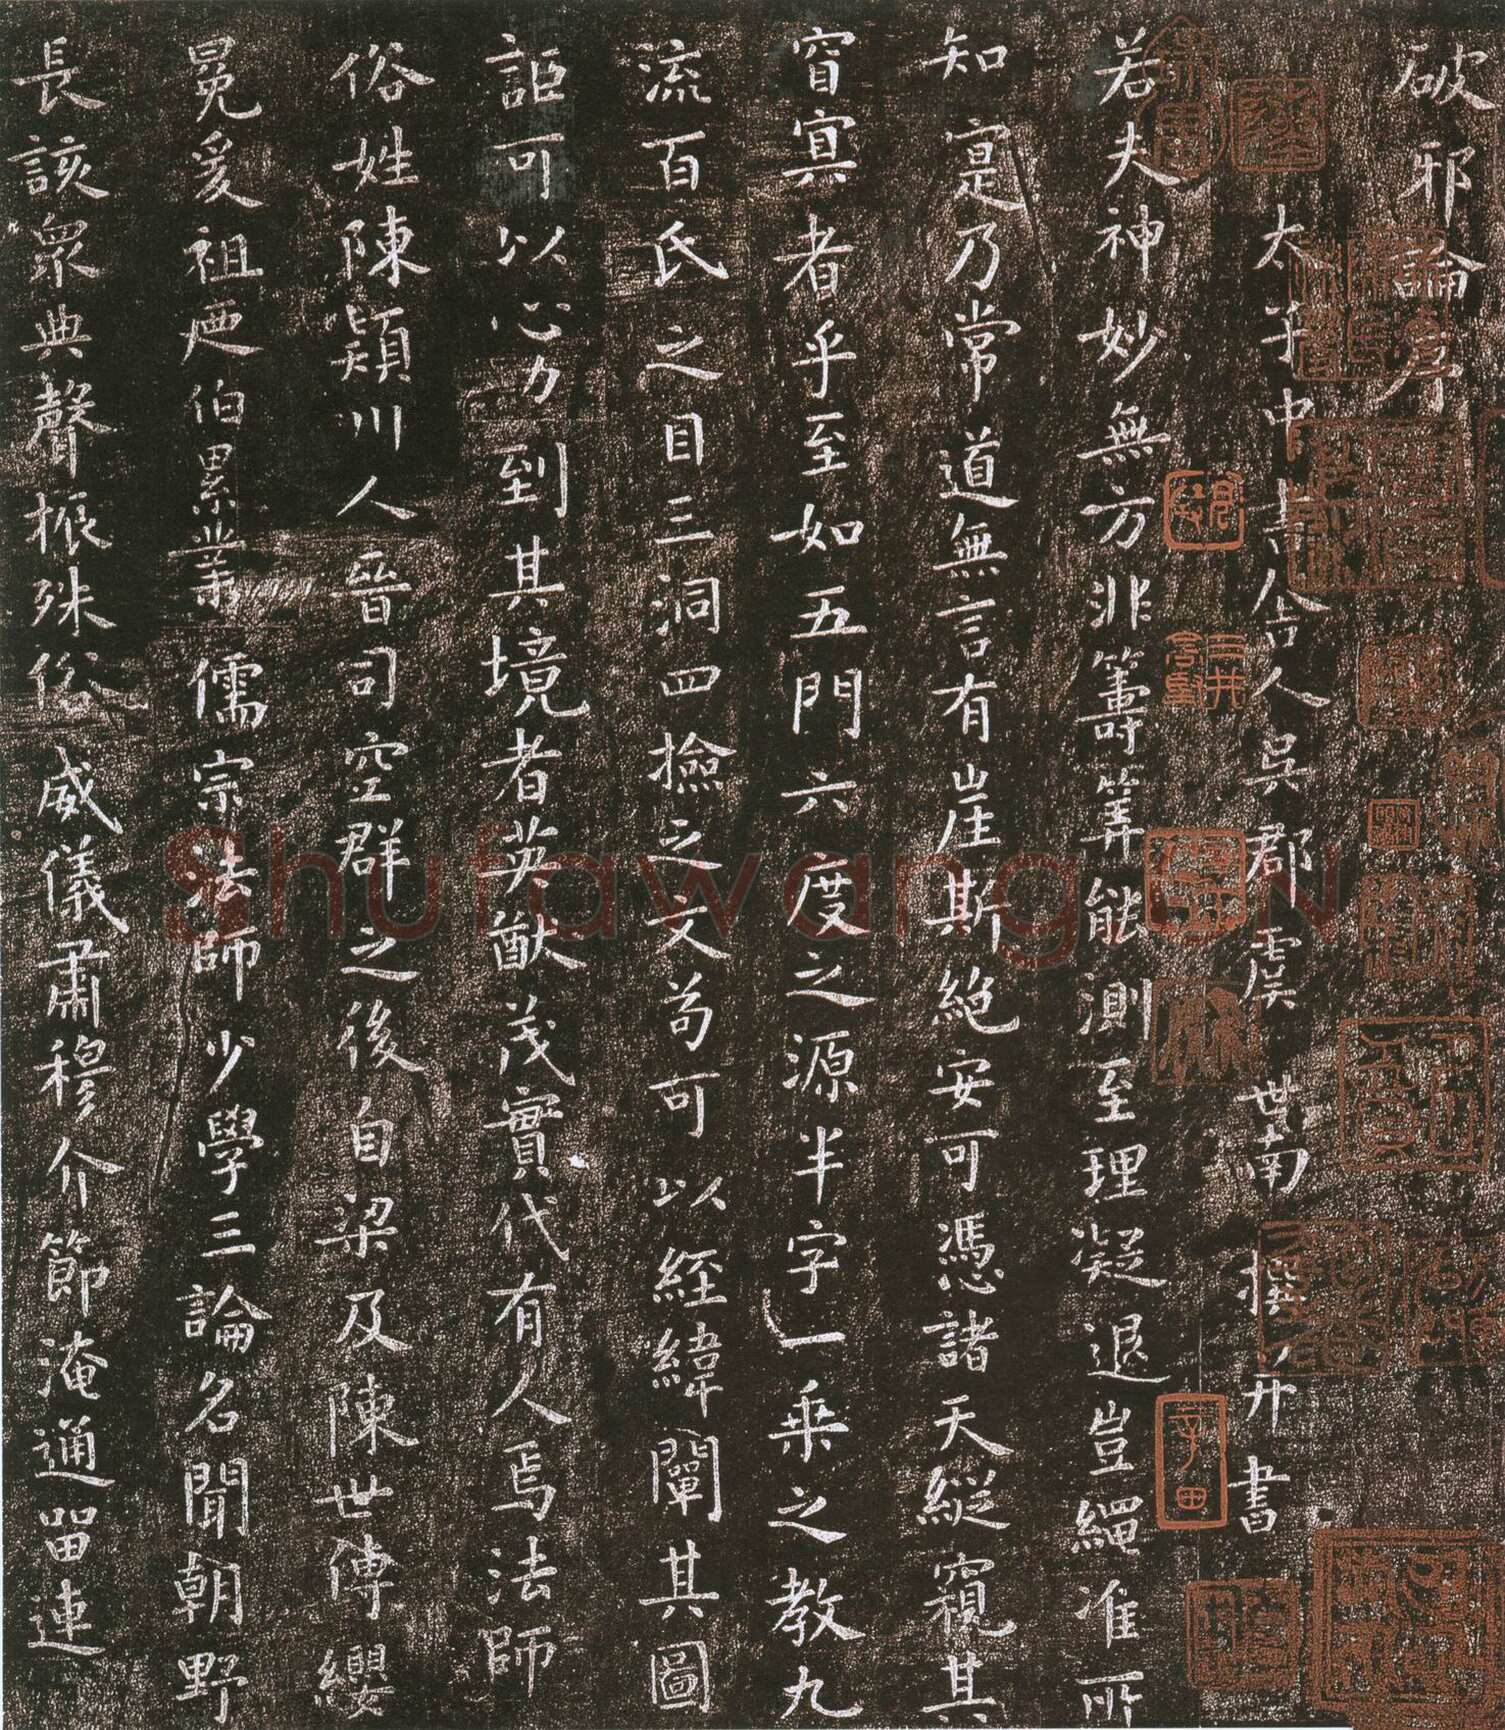 破邪論序
太子中書舍人吳郡虞世南撰并書
若夫神妙無方非籌筭能測至理凝退豈繩准所
知寔乃常道無言有崖斯絶安可憑諸天縱窺其
窅寞者乎至如五門六度之源半字一乗之教九
流百氏之目三洞四撿之文苟可以經緯闡其圖
詎可以心力到其境者英猷茂實代有人焉法師
俗姓陳潁川人晉司空群之後自梁及陳世傳纓
冕爰祖迊伯累業儒宗法師少學三論名聞朝野
長該衆典聲振殊俗威儀肅穆介節淹通留連
ShufawangCN